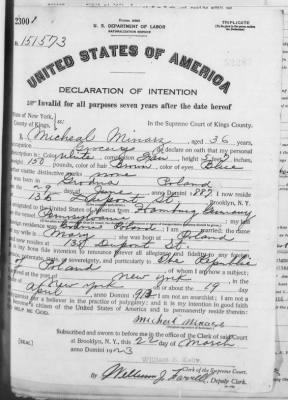 TRIPLICATE
U. S. DEPARTMENT OF LABOR
NATURALIZATION SERVICE
2300
No. 151573
UNITED STATES OF AMERICA
DECLARATION OF INTENTION
Invalid for all purposes seven years after the date hereof
State of New York,
County of Kings. ss: In the Supreme Court of Kings County.
I, Micheal Minasz, aged 36 years,
occupation Grocery, do declare on oath that my personal
description is: Color white, complexion Fair, height 5 feet 7 inches,
weight 150 pounds, color of hair Brown, color of eyes Blue
other visible distinctive marks none
I was born in Grodna Poland
on the 29 day of June, anno Domini 1887; I now reside
at 138 Dupont St, Brooklyn, N. Y.
I emigrated to the United States of America from Hamburg Germany
on the vessel Pennsylvania; my last
foreign residence was Poland; I am married; the name
of my wife is Mary; she was born at Poland
and now resides at 138 Dupont St.
It is my bona fide intention to renounce forever all allegiance and fidelity to any foreign
prince, potentate, state, or sovereignty, and particularly to The Republic
of Poland, of whom I am now a subject;
I arrived at the port of New York, in the
State of New York, on or about the 19 day
of, anno Domini 1913; I am not an anarchist; I am not a
polygamist nor a believer in the practice of polygamy; and it is my intention in good faith
to become a citizen of the United States of America and to permanently reside therein:
SO HELP ME GOD.
Micheal Minasz
Subscribed and sworn to before me in the office of the Clerk of said Court
[SEAL] at Brooklyn, N. Y., this 22 day of March
anno Domini 1923
Clerk of the Supreme Court.
By William J. Farrell, Deputy Clerk.